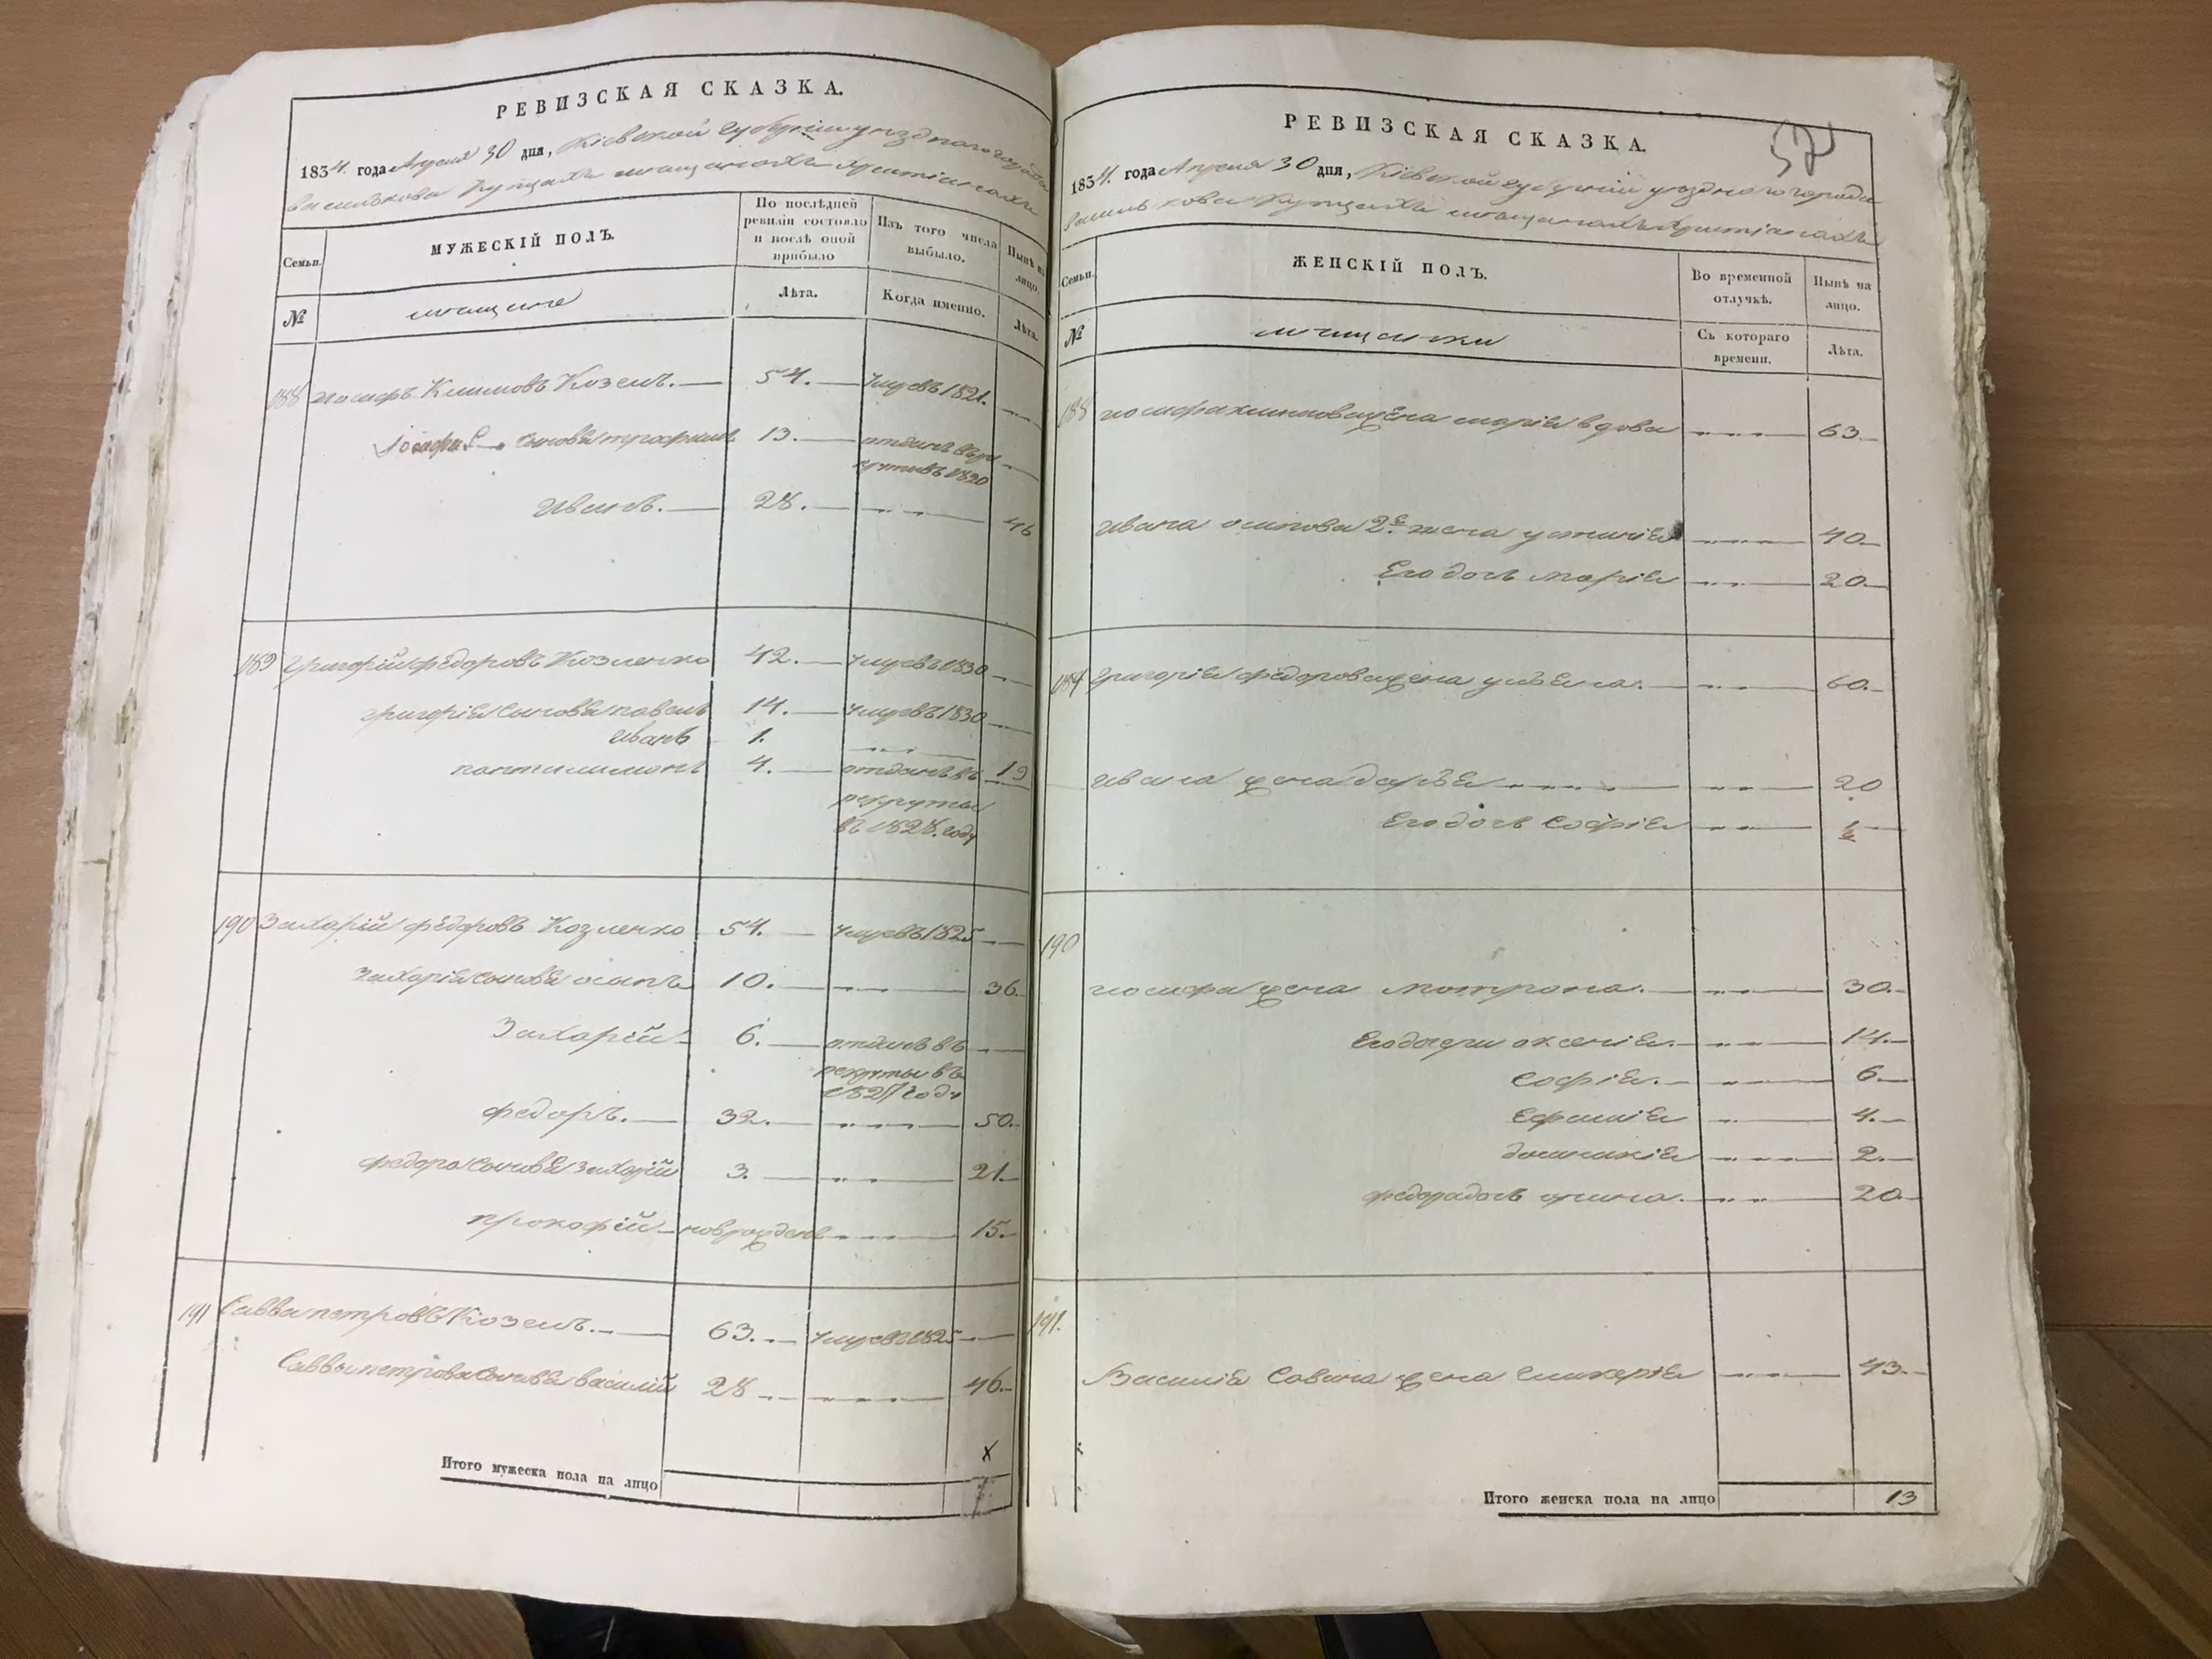 РЕВИЗСКАЯ СКАЗКА.
1834. года Апреля 30 дня, Кіевской губерніи уезднаго города
василькова Купцахъ мещанахъ христіанахъ
Семьи.
МУЖЕСКІЙ ПОЛЪ.
По послѣдней ревизіи состояло и послѣ оной прибыло
Изъ того числа выбыло.
Нынѣ на лицо.
№
мещане
Лѣта.
Когда именно.
Лѣта.
188 иосифъ Климовъ Козелъ. 54. умре въ 1821.
Іосифа сыновья трофимъ 13. отданъ въ ре
круты въ 1820
Иванъ. 28. 46
189 Григорій федоровъ Козленко 42. умре въ 1830
григорія сыновья павелъ 14. умре въ 1830
иванъ 1. 19
пантилимонъ 4. отданъ въ
рекруты
въ 1828. году
190 Захарій федоровъ Козленко 54. умре въ 1825
захарія сыновья осипъ 10. 36.
Захарій 6. отданъ въ
рекруты въ
1827 году
федоръ. 32. 50.
федора сыновья захарій 3. 21.
прокофій новорожденъ 15.
191 Савва петровъ Козелъ. 63. умре въ 1825
Саввы петрова сыновья василій 28 46.
х
Итого мужеска пола на лицо 7
57
РЕВИЗСКАЯ СКАЗКА.
1834. года Апреля 30 дня, Кіевской губерніи уезднаго города
василькова Купцахъ мещанахъ христіанахъ
Семьи.
ЖЕНСКІЙ ПОЛЪ.
Во временной отлучкѣ.
Нынѣ на лицо.
№
мещанки
Съ котораго времени.
Лѣта.
188 иосифа климова жена марія вдова 63
Ивана осипова 2я жена устинія 40
Его дочь марія 20
189 Григорія федорова жена улѣяна. 60.
ивана жена дарья 20
Его дочь софія
190
иосифа жена мотрона. 30.
Его дочери оксенія. 14.
софія. 6
Ефимія 4.
домникія 2.
федора дочь ирина. 20
191.
Василія Савина жена гликерія 43
Итого женска пола на лицо 13